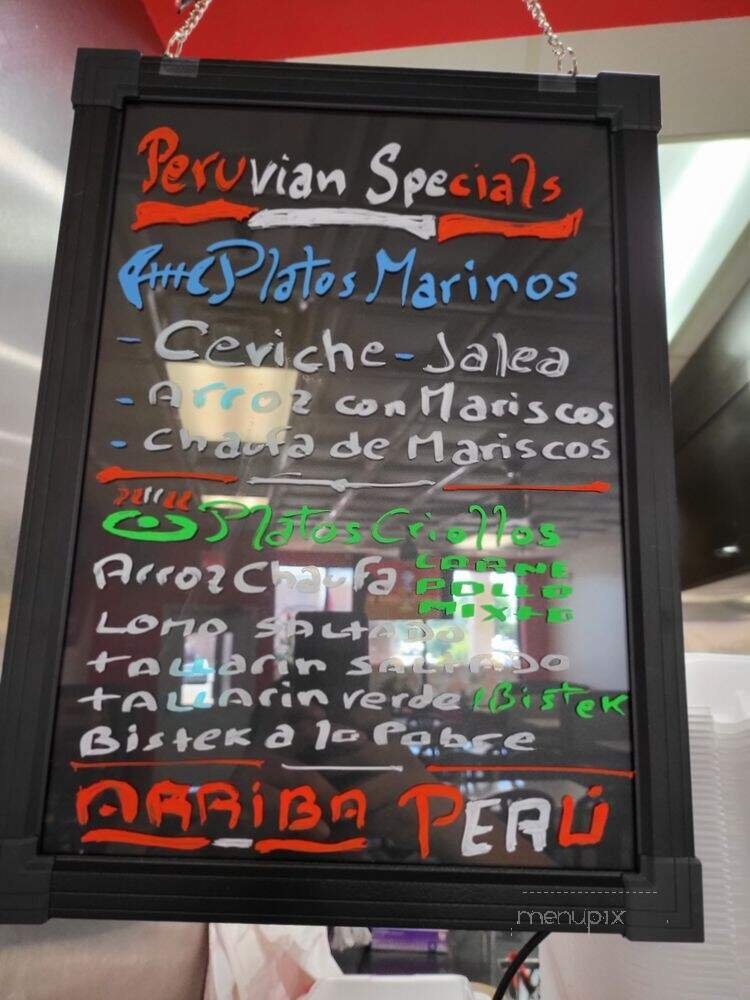 Peruvian Specials
Platos Marinos
- Ceviche - Jalea
- Arroz con Mariscos
- Chaufa de Mariscos
Platos Criollos
Arroz Chaufa CARNE
POLLO
MIXTO
LOMO SALTADO
tALLArin SALTADO
tALLArin verde /Bistek
Bistek a lo Pobre
ARRiBA PERÚ
menupix